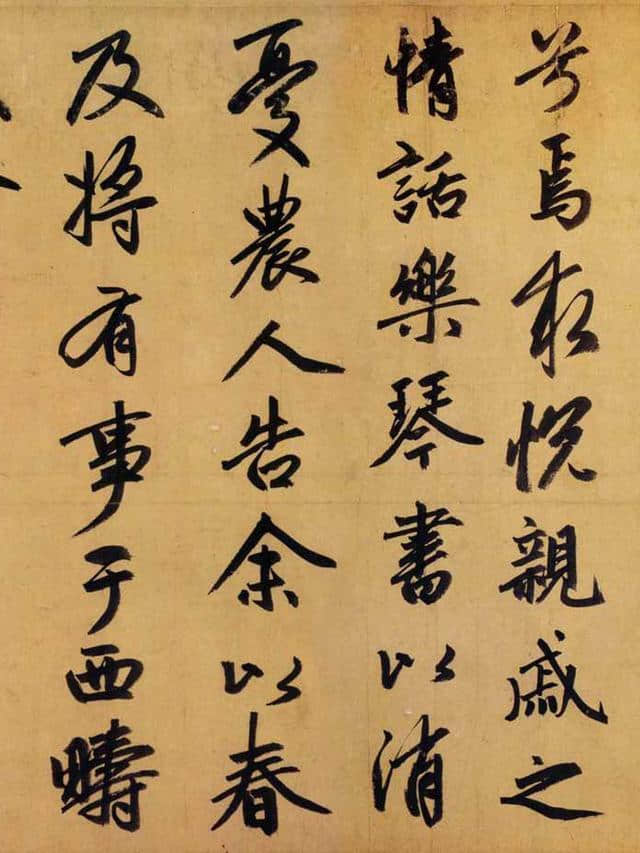 兮焉求悅親戚之
情話樂琴書以消
憂農人告余以春
及將有事于西疇